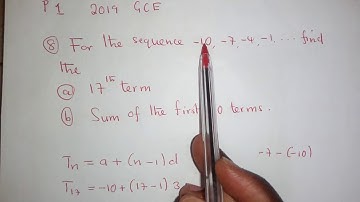 P 1 2019 GCE
⑧ For the sequence -10, -7, -4, -1, ... find
the
ⓐ 17th term
ⓑ Sum of the first 0 terms.
Tn = a + (n-1)d -7 - (-10)
T17 = -10 + (17-1) 3